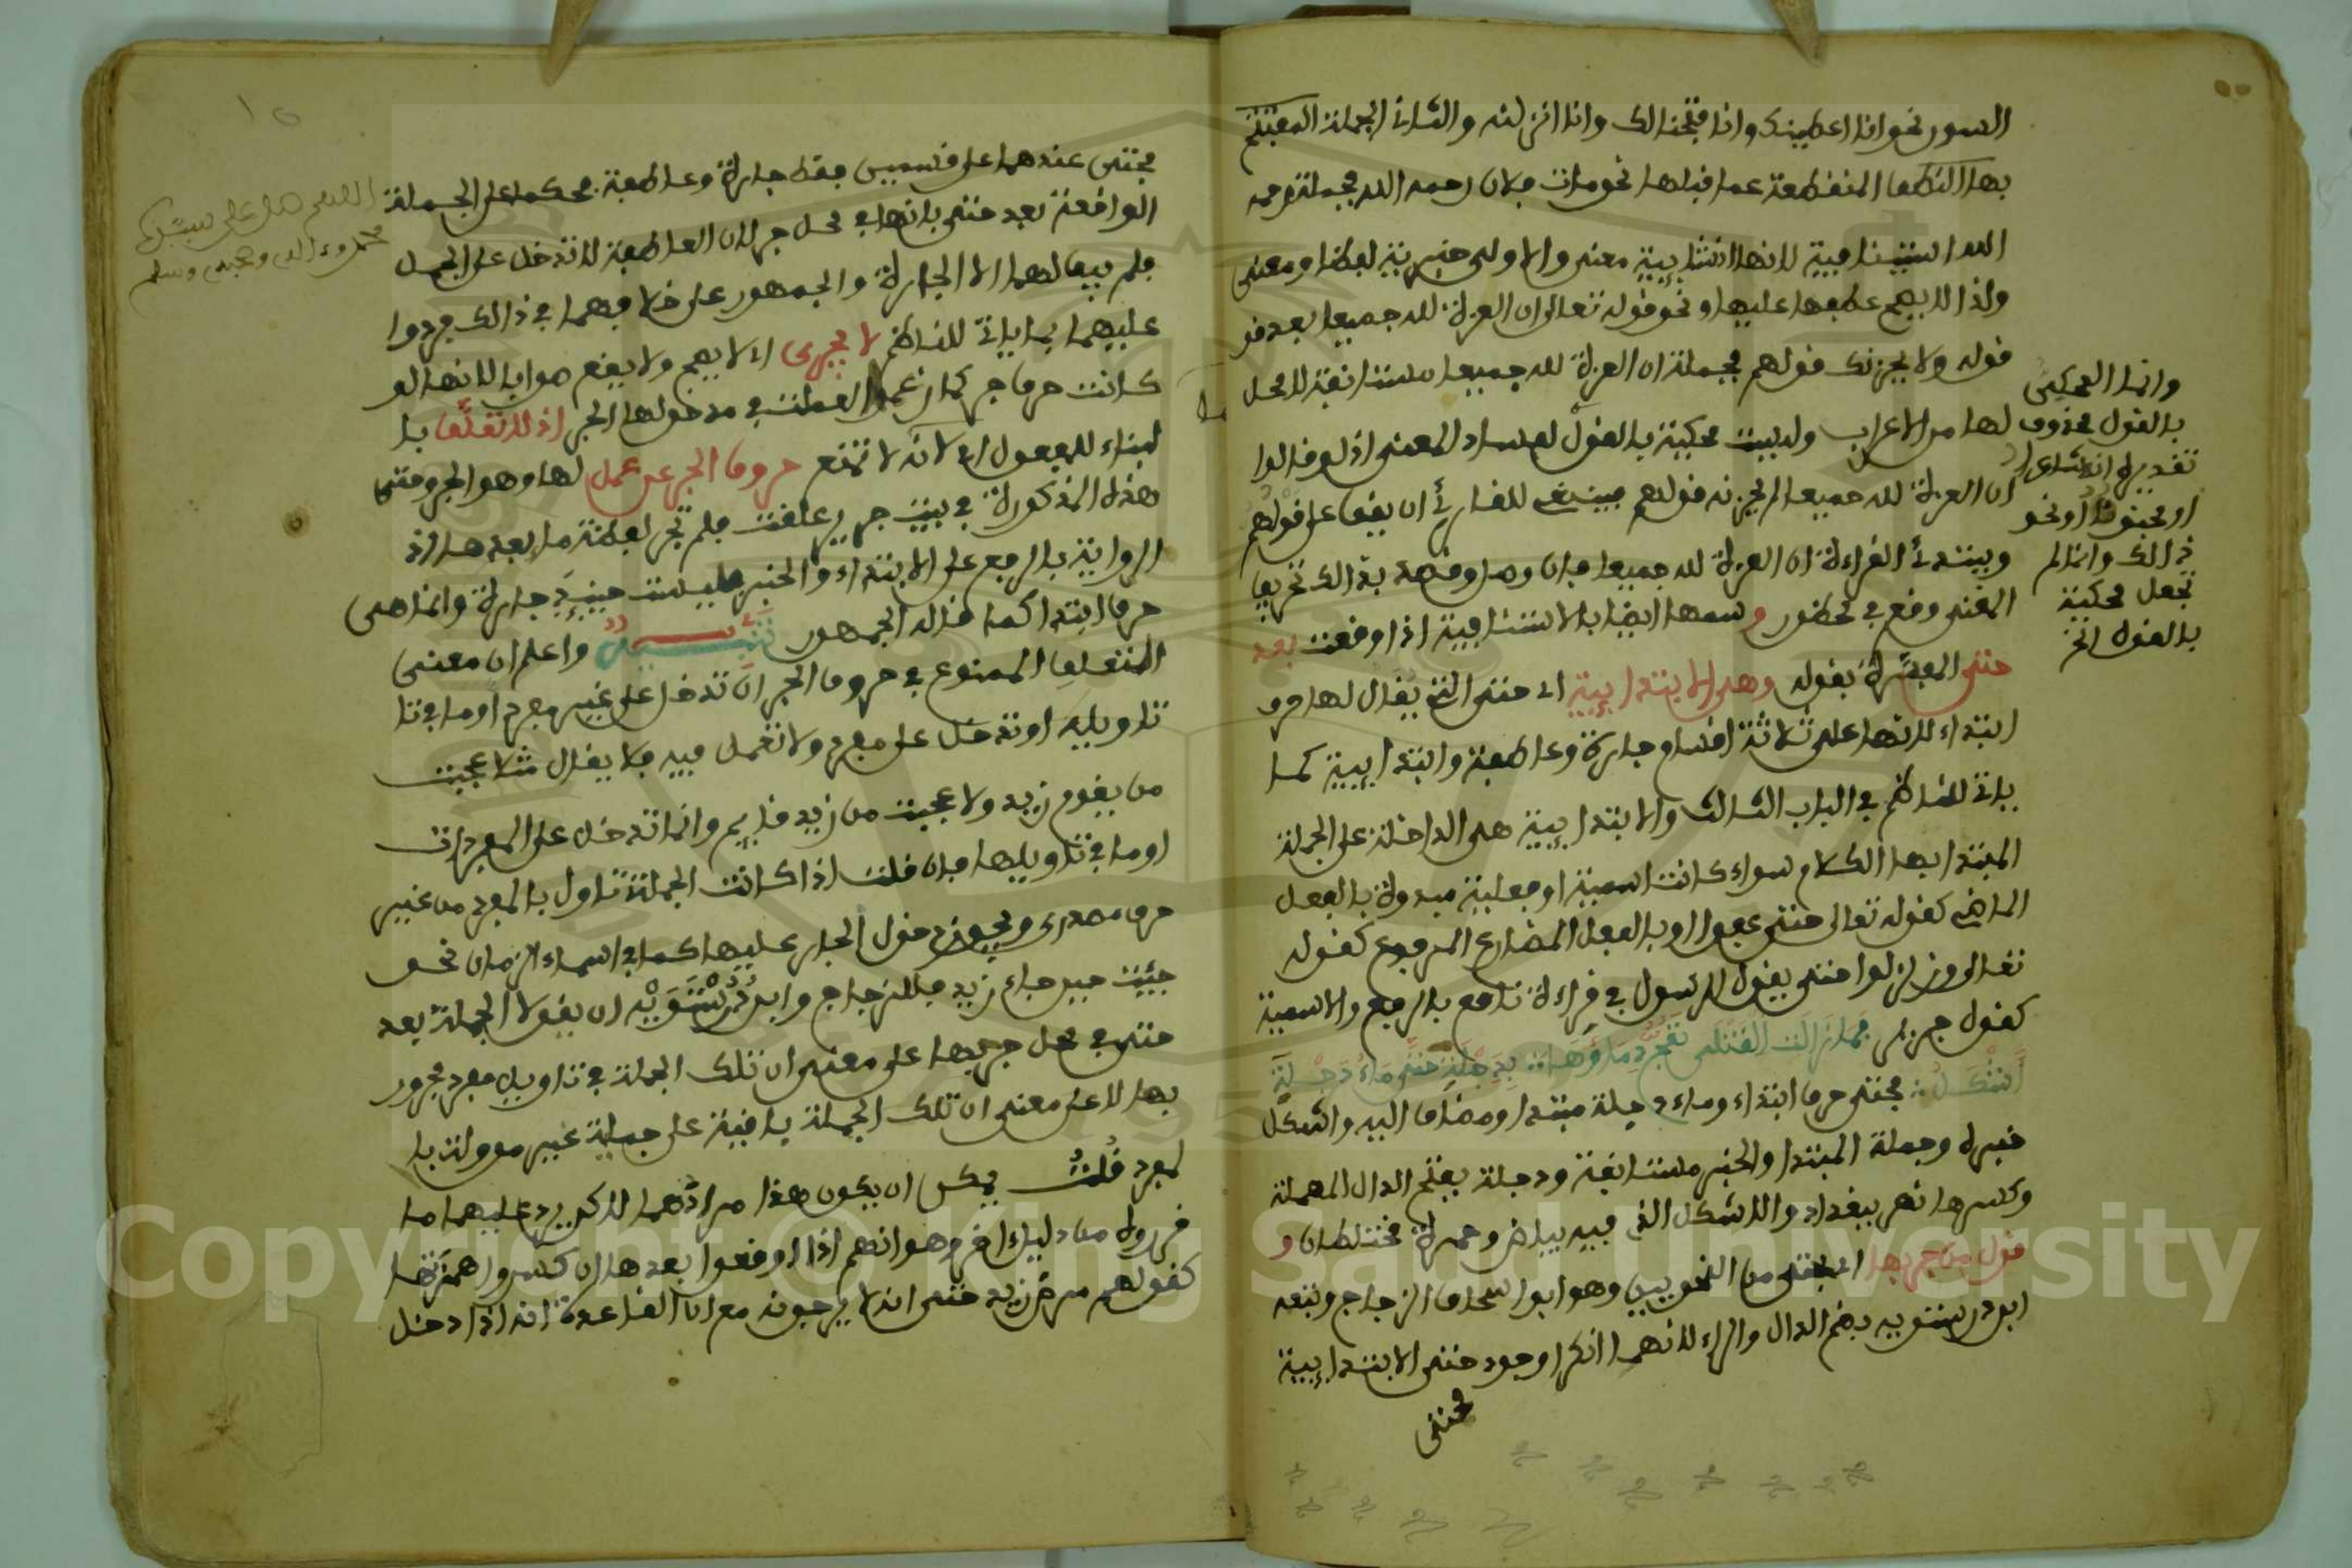 السور نحو انا اعطينك وانا فتحنا لك وانا انزلنه والثاني الجملة المفتتح
بها النطق المنقطعة عما قبلها نحو مات فلان رحمه الله فجملة رحمه
الله استينافية لانها انشايية معنى والاولى خبرية لفظا ومعنى
ولذا لا يصح عطفها عليها ونحو قوله تعالى ان العزة لله جميعا بعد قو
قوله ولا يحزنك قولهم فجملة ان العزة لله جميعا مستانفة لا محل
لها من الاعراب وليست محكية بالقول لفساد المعنى اذ لو قالوا
ان العزة لله جميعا لم يحزنه قولهم فينبغي للقارئ ان يقف على قولهم
ويبتدئ القراءة ان العزة لله جميعا فان وصل وقصد بذالك تحريف
المعنى وقع في محظور وسمها ايضا بالاستينافية اذا وقعت بعد
حتى المعبرة بقوله وهي الابتدايية اي حتى التي يقال لها حرف
ابتداء لانها على ثلاثة اقسام جارة وعاطفة وابتدايية كما
ياتي للناظم في الباب الثالث والابتدايية هي الداخلة على الجملة
المبتدا بها الكلام سواء كانت اسمية او فعلية مبدوة بالفعل
الماضي كقوله تعالى حتى عفوا او بالفعل المضارع المرفوع كقوله
تعالى وزلزلوا حتى يقول الرسول في قراءة نافع بالرفع والاسمية
كقول جرير فما زالت القتلى تمج دماؤها بدجلة حتى ماء دجلة
اشكل فحتى حرف ابتداء وماء دجلة مبتدا ومضاف اليه واشكل
خبره وجملة المبتدا والخبر مستانفة ودجلة بفتح الدال المهملة
وكسرها نهر ببغداد والاشكل الذي فيه بياض وحمرة مختلطان و
قول من جر بها اي بحتى من النحويين وهو ابو اسحاق الزجاج وتبعه
ابن درستويه بضم الدال والراء لانهما انكرا وجود حتى الابتدايية
فحتى
وانما المحكي
بالقول محذوف
تقديره انك شاعر
او مجنون او نحو
ذالك وانما لم
تجعل محكية
بالقول الخ
فحتى عندهما على قسمين فقط جارة وعاطفة فحكما على الجملة
الواقعة بعد حتى بانها في محل جر لان العاطفة لا تدخل على الجمل
فلم يبق لهما الا الجارة والجمهور على خلافهما في ذالك فردوا
عليهما بما ياتي للناظم لا يجرى اي لا يصح ولا يقع صوابا لانها لو
كانت حرف جر كما زعما لعملت في مدخولها الجر اذ لا تعلق با
لبناء للمفعول اي لانه لا تمتنع حروف الجر عن عمل لها وهو الجر وحتى
هذه المذكورة في بيت جرير علقت فلم تجر لفظة ما بعدها اذ
الرواية بالرفع على الابتداء والخبر فليست حينيذ جارة وانما هي
حرف ابتدا كما قال الجمهور تنبيه واعلم ان معنى
التعليق الممنوع في حروف الجر ان تدخل على غير مفرد او ما في تا
تاويله او تدخل على مفرد ولا تعمل فيه فلا يقال مثلا عجبت
من يقوم زيد ولا عجبت من زيد قايم وانما تدخل على المفردات
او ما في تاويلها فان قلت اذا كانت الجملة تاول بالمفرد من غير
حرف مصدري ويجوز دخول الجار عليها كما في اسماء الزمان نحو
جيت حين جاء زيد فللزجاج وابن درستويه ان يقولا الجملة بعد
حتى في محل جر بها على معنى ان تلك الجملة في تاويل مفرد مجرور
بها لا على معنى ان تلك الجملة باقية على جملية غير موولة با
لمفرد قلت يمكن ان يكون هذا مرادهما لاكن يرد عليهما ما
قرروه من دليل اخر وهو انهم اذا اوقعوا بعدها ان كسروا همزتها
كقولهم مرض زيد حتى انه لا يرجونه مع ان القاعدة انه اذا دخل
اللهم صل على سيدنا
محمد وءاله وصحبه وسلم
١٥
Copyright © King Saud University
1957